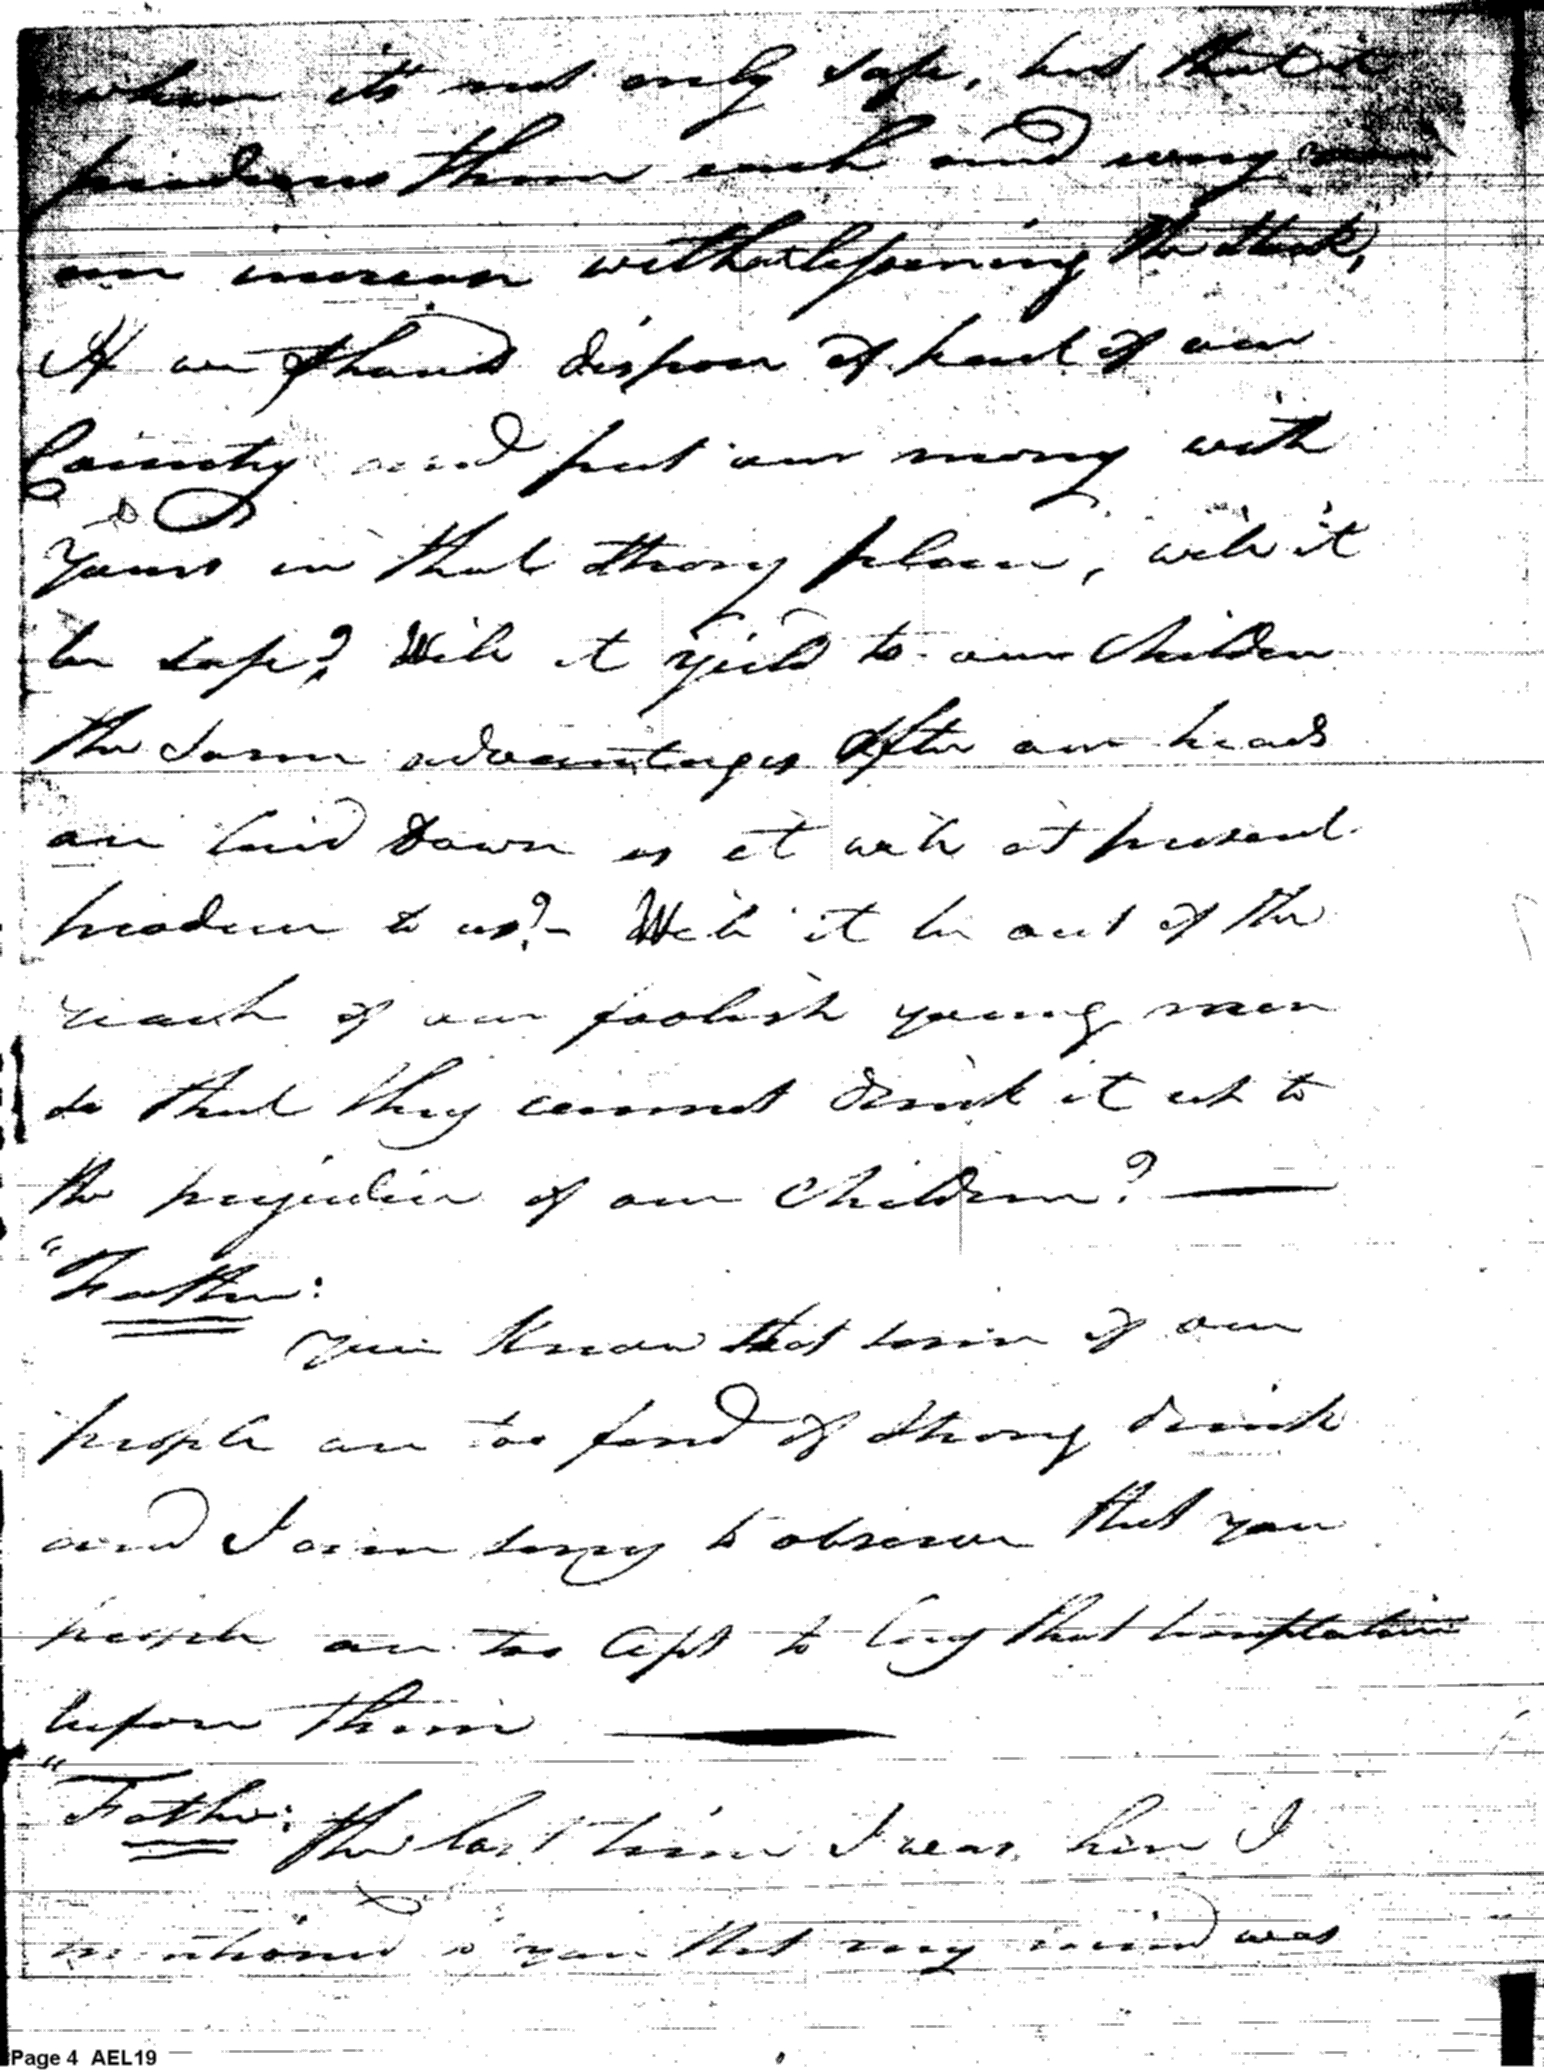 where it's not only safe, but that it
produces them each and every year
an increase without lessening the stock,
If we should dispose of part of our
Country and put our mony with
Yours in that strong place, will it
be safe? Will it yield to our Children
the same advantages After our heads
are laid down as it will at present
produce to us?- Will it be out of the
reach of our foolish young men
so that they cannot drink it up to
the prejudice of our Children? —
"Father:
You Know that some of our
people are too fond of strong drink
and I am sorry to observe that you
people are too Apt to lay that temptation
before them —
"Father: The last time I was here I
mentioned to you that my mind was
Page 4 AEL19